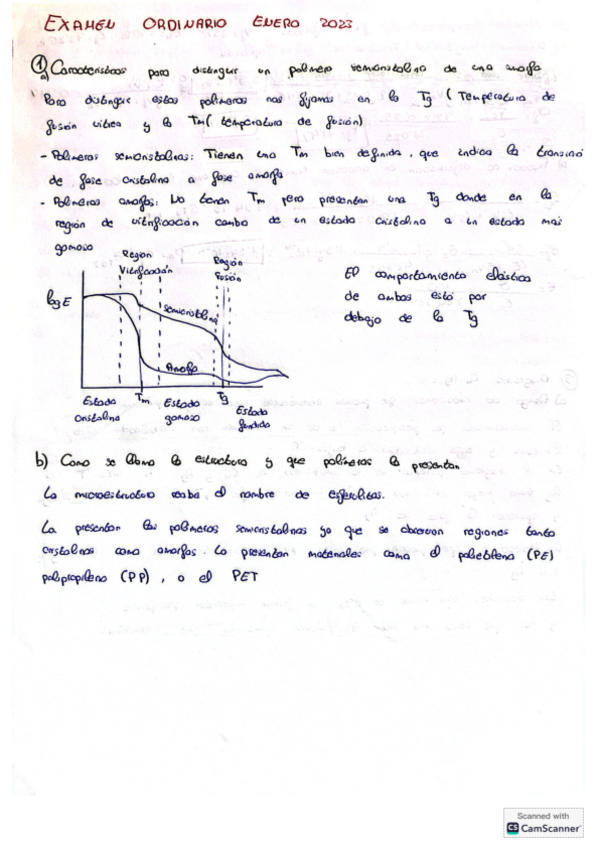 EXAMEN ORDINARIO ENERO 2023
① a) Características para distinguir un polímero semicristalino de uno amorfo
Para distinguir estos polímeros nos fijamos en la Tg (Temperatura de
fusión vítrea y la Tm (temperatura de fusión)
- Polímeros semicristalinos: Tienen una Tm bien definida, que indica la transición
de fase cristalina a fase amorfa
- Polímeros amorfos: No tienen Tm pero presentan una Tg donde en la
región de vitrificación cambia de un estado cristalino a un estado más
gomoso
Región Vitrificación
Región Fusión
log E
semicristalino
Amorfo
Tm
Tg
Estado cristalino
Estado gomoso
Estado fundido
El comportamiento elástico
de ambos está por
debajo de la Tg
b) Como se llama la estructura y que polímeros la presentan
La microestructura recibe el nombre de esferulitas.
La presentan los polímeros semicristalinos ya que se observan regiones tanto
cristalinas como amorfas. La presentan materiales como el polietileno (PE)
polipropileno (PP), o el PET
Scanned with
CS CamScanner